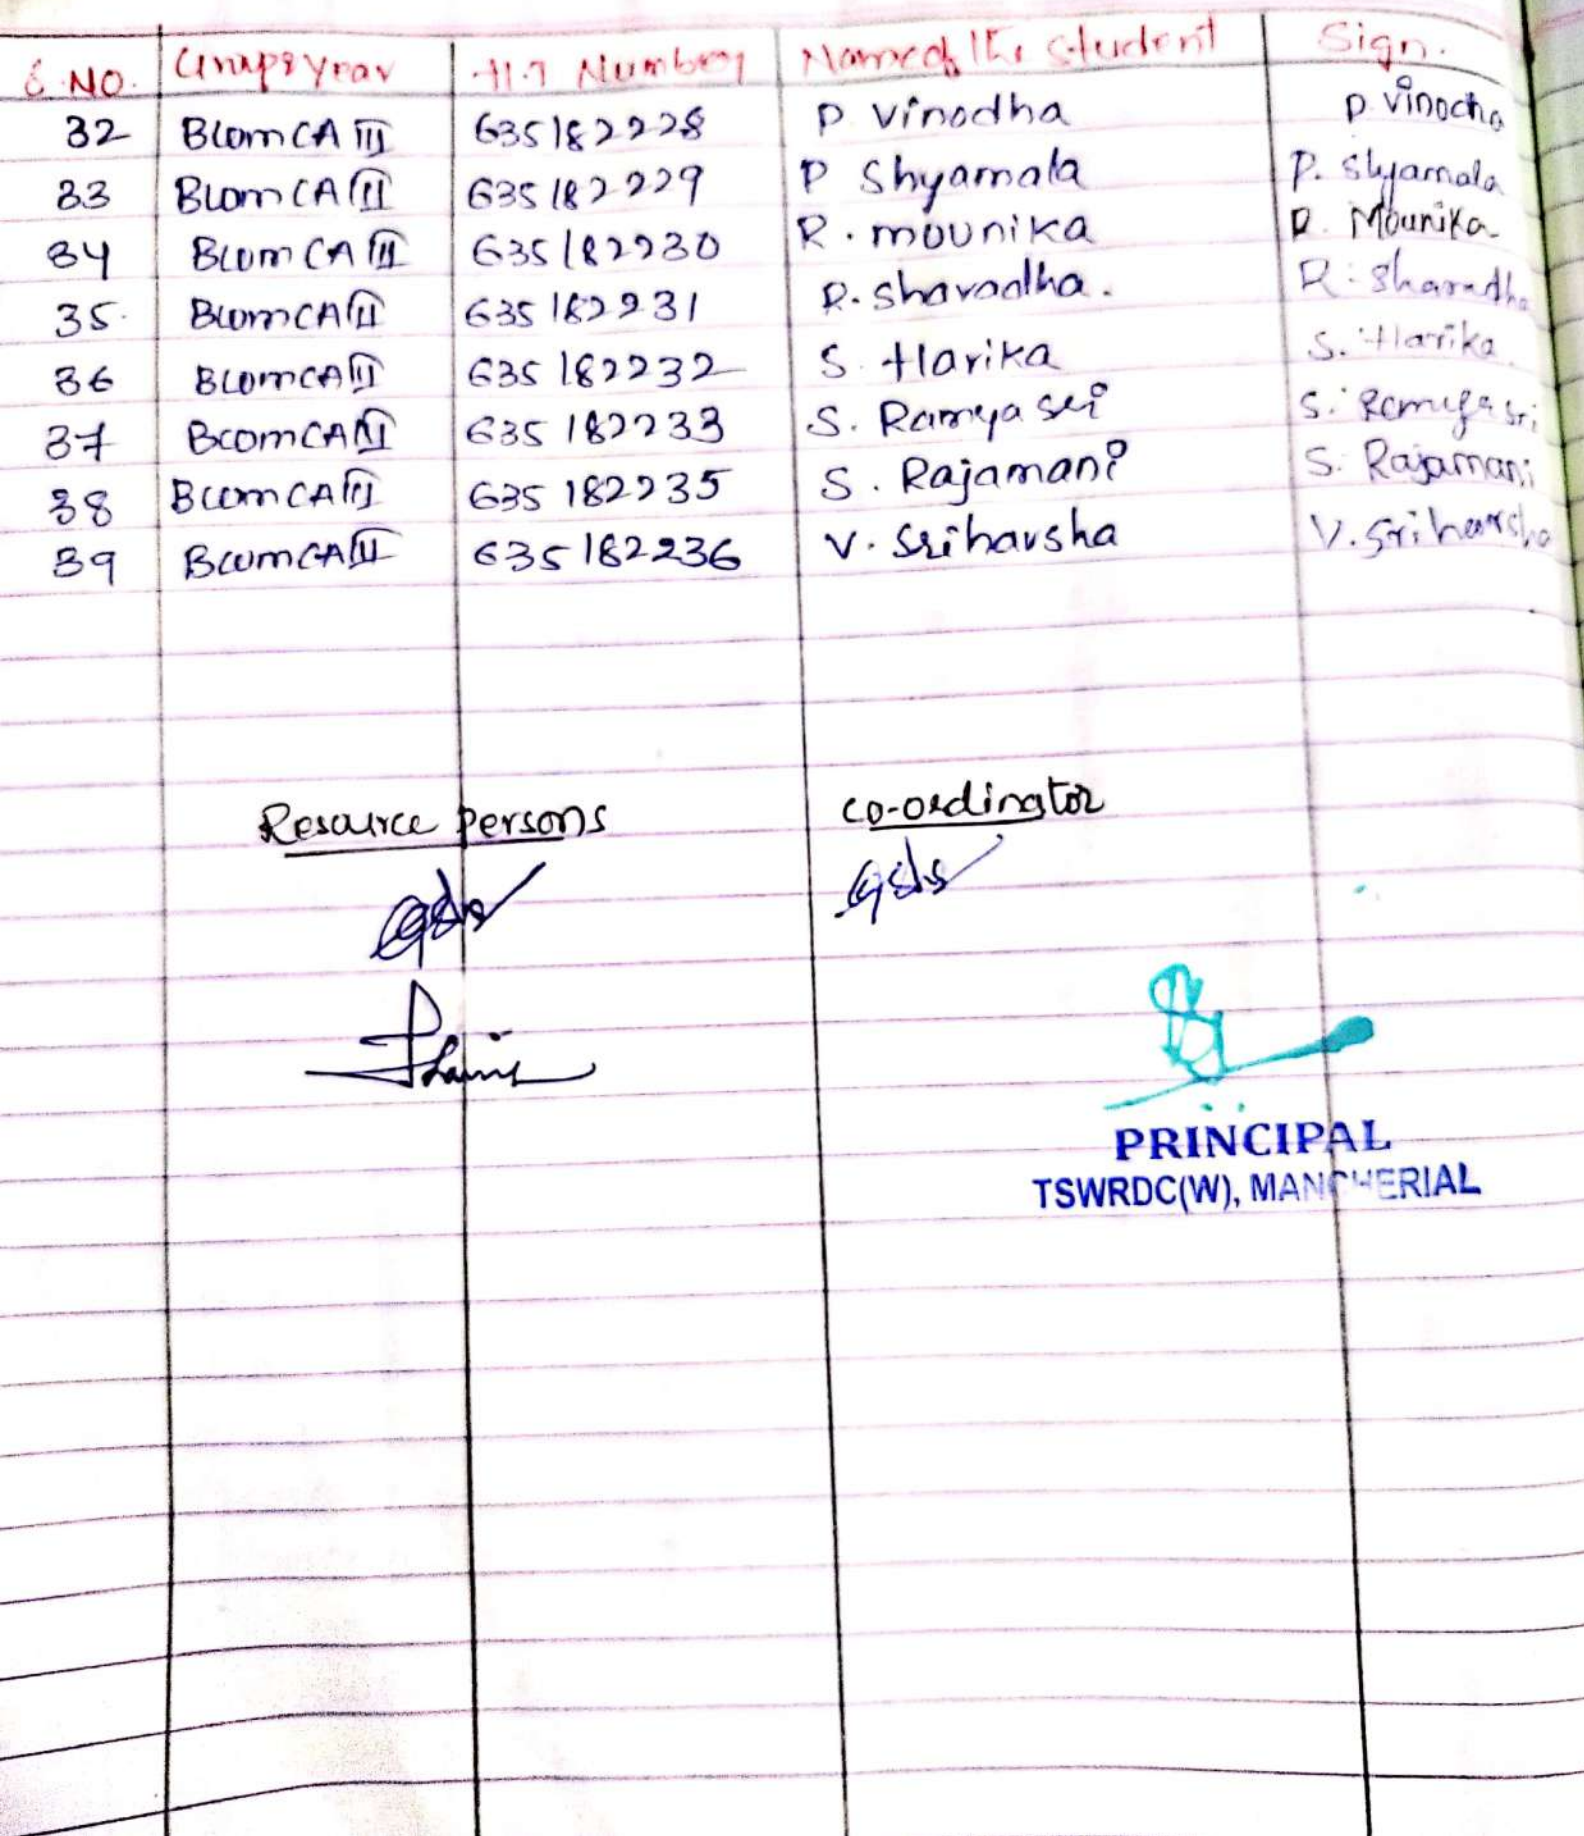 S.NO. Group&year H.T Number Name of the Student Sign.
32 BComCA III 635182228 P Vinodha P Vinodha
33 BComCA III 635182229 P Shyamala P. Shyamala
34 BComCA III 635182230 R. mounika R. Mounika
35. BComCA III 635182231 R. Sharadha. R. Sharadha
36 BComCA III 635182232 S. Harika S. Harika
37 BcomCA III 635182233 S. Ramya sri S. Ramya sri
38 BcomCA III 635182235 S. Rajamani S. Rajamani
39 BcomCA III 635182236 V. Sriharsha V. Sriharsha
Resource persons Co-ordinator
PRINCIPAL
TSWRDC(W), MANCHERIAL